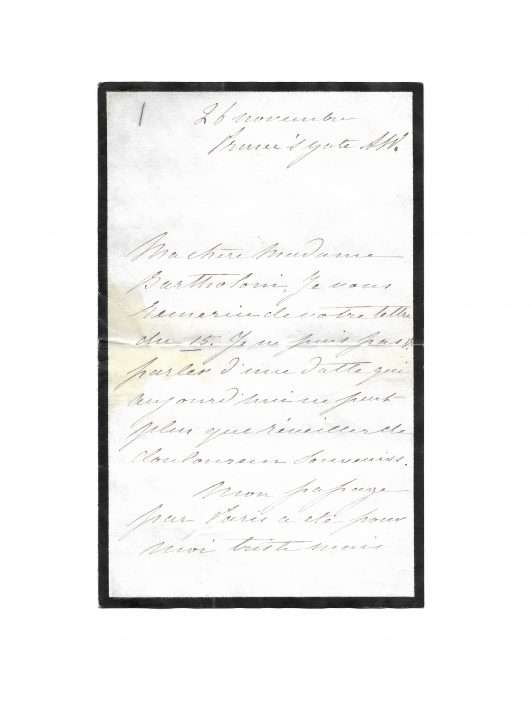 1
26 novembre
Prince's gate
Ma chère Madame
Bartholoni, Je vous
remercie de votre lettre
du 15. Je ne puis pas
parler d'une datte qui
aujourd'hui ne peut
plus que réveiller de
douloureux souvenirs.
Mon passage
par Paris a été pour
moi triste mais